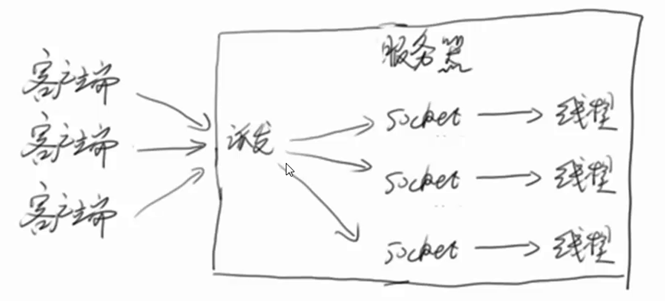 服务器
客户端
客户端
客户端
派发
socket 线程
socket 线程
socket 线程